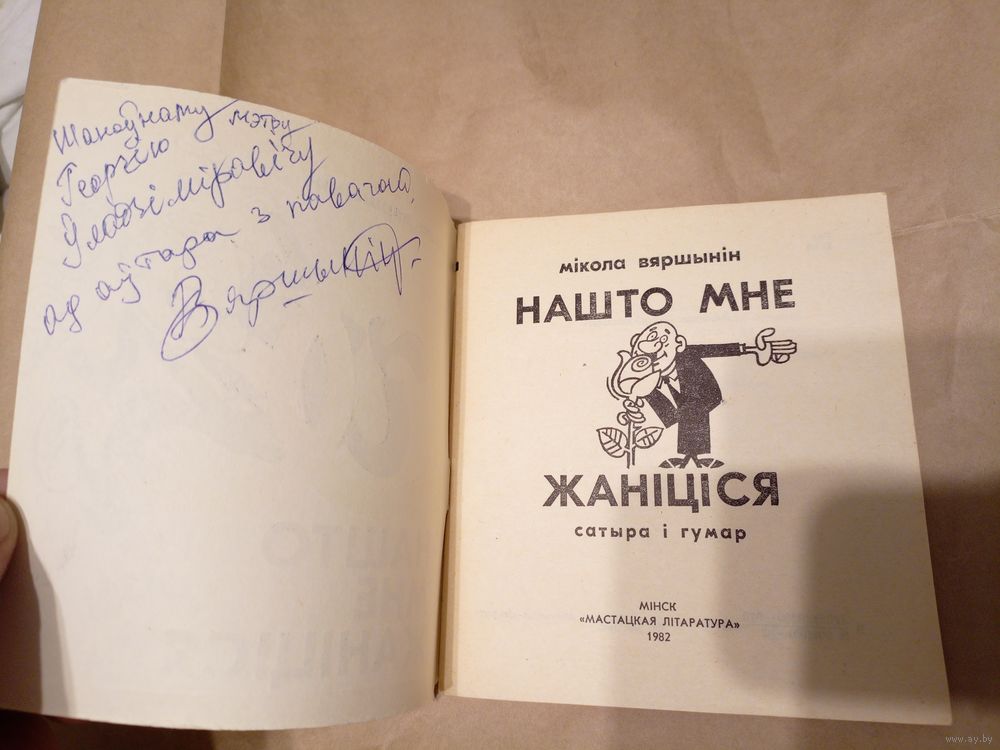 Шаноўнаму мэтру
Георгію
Уладзіміравічу
ад аўтара з павагай,
Вяршынін.
мікола вяршынін
НАШТО МНЕ
ЖАНІЦІСЯ
сатыра і гумар
МІНСК
«МАСТАЦКАЯ ЛІТАРАТУРА»
1982
www.ay.by